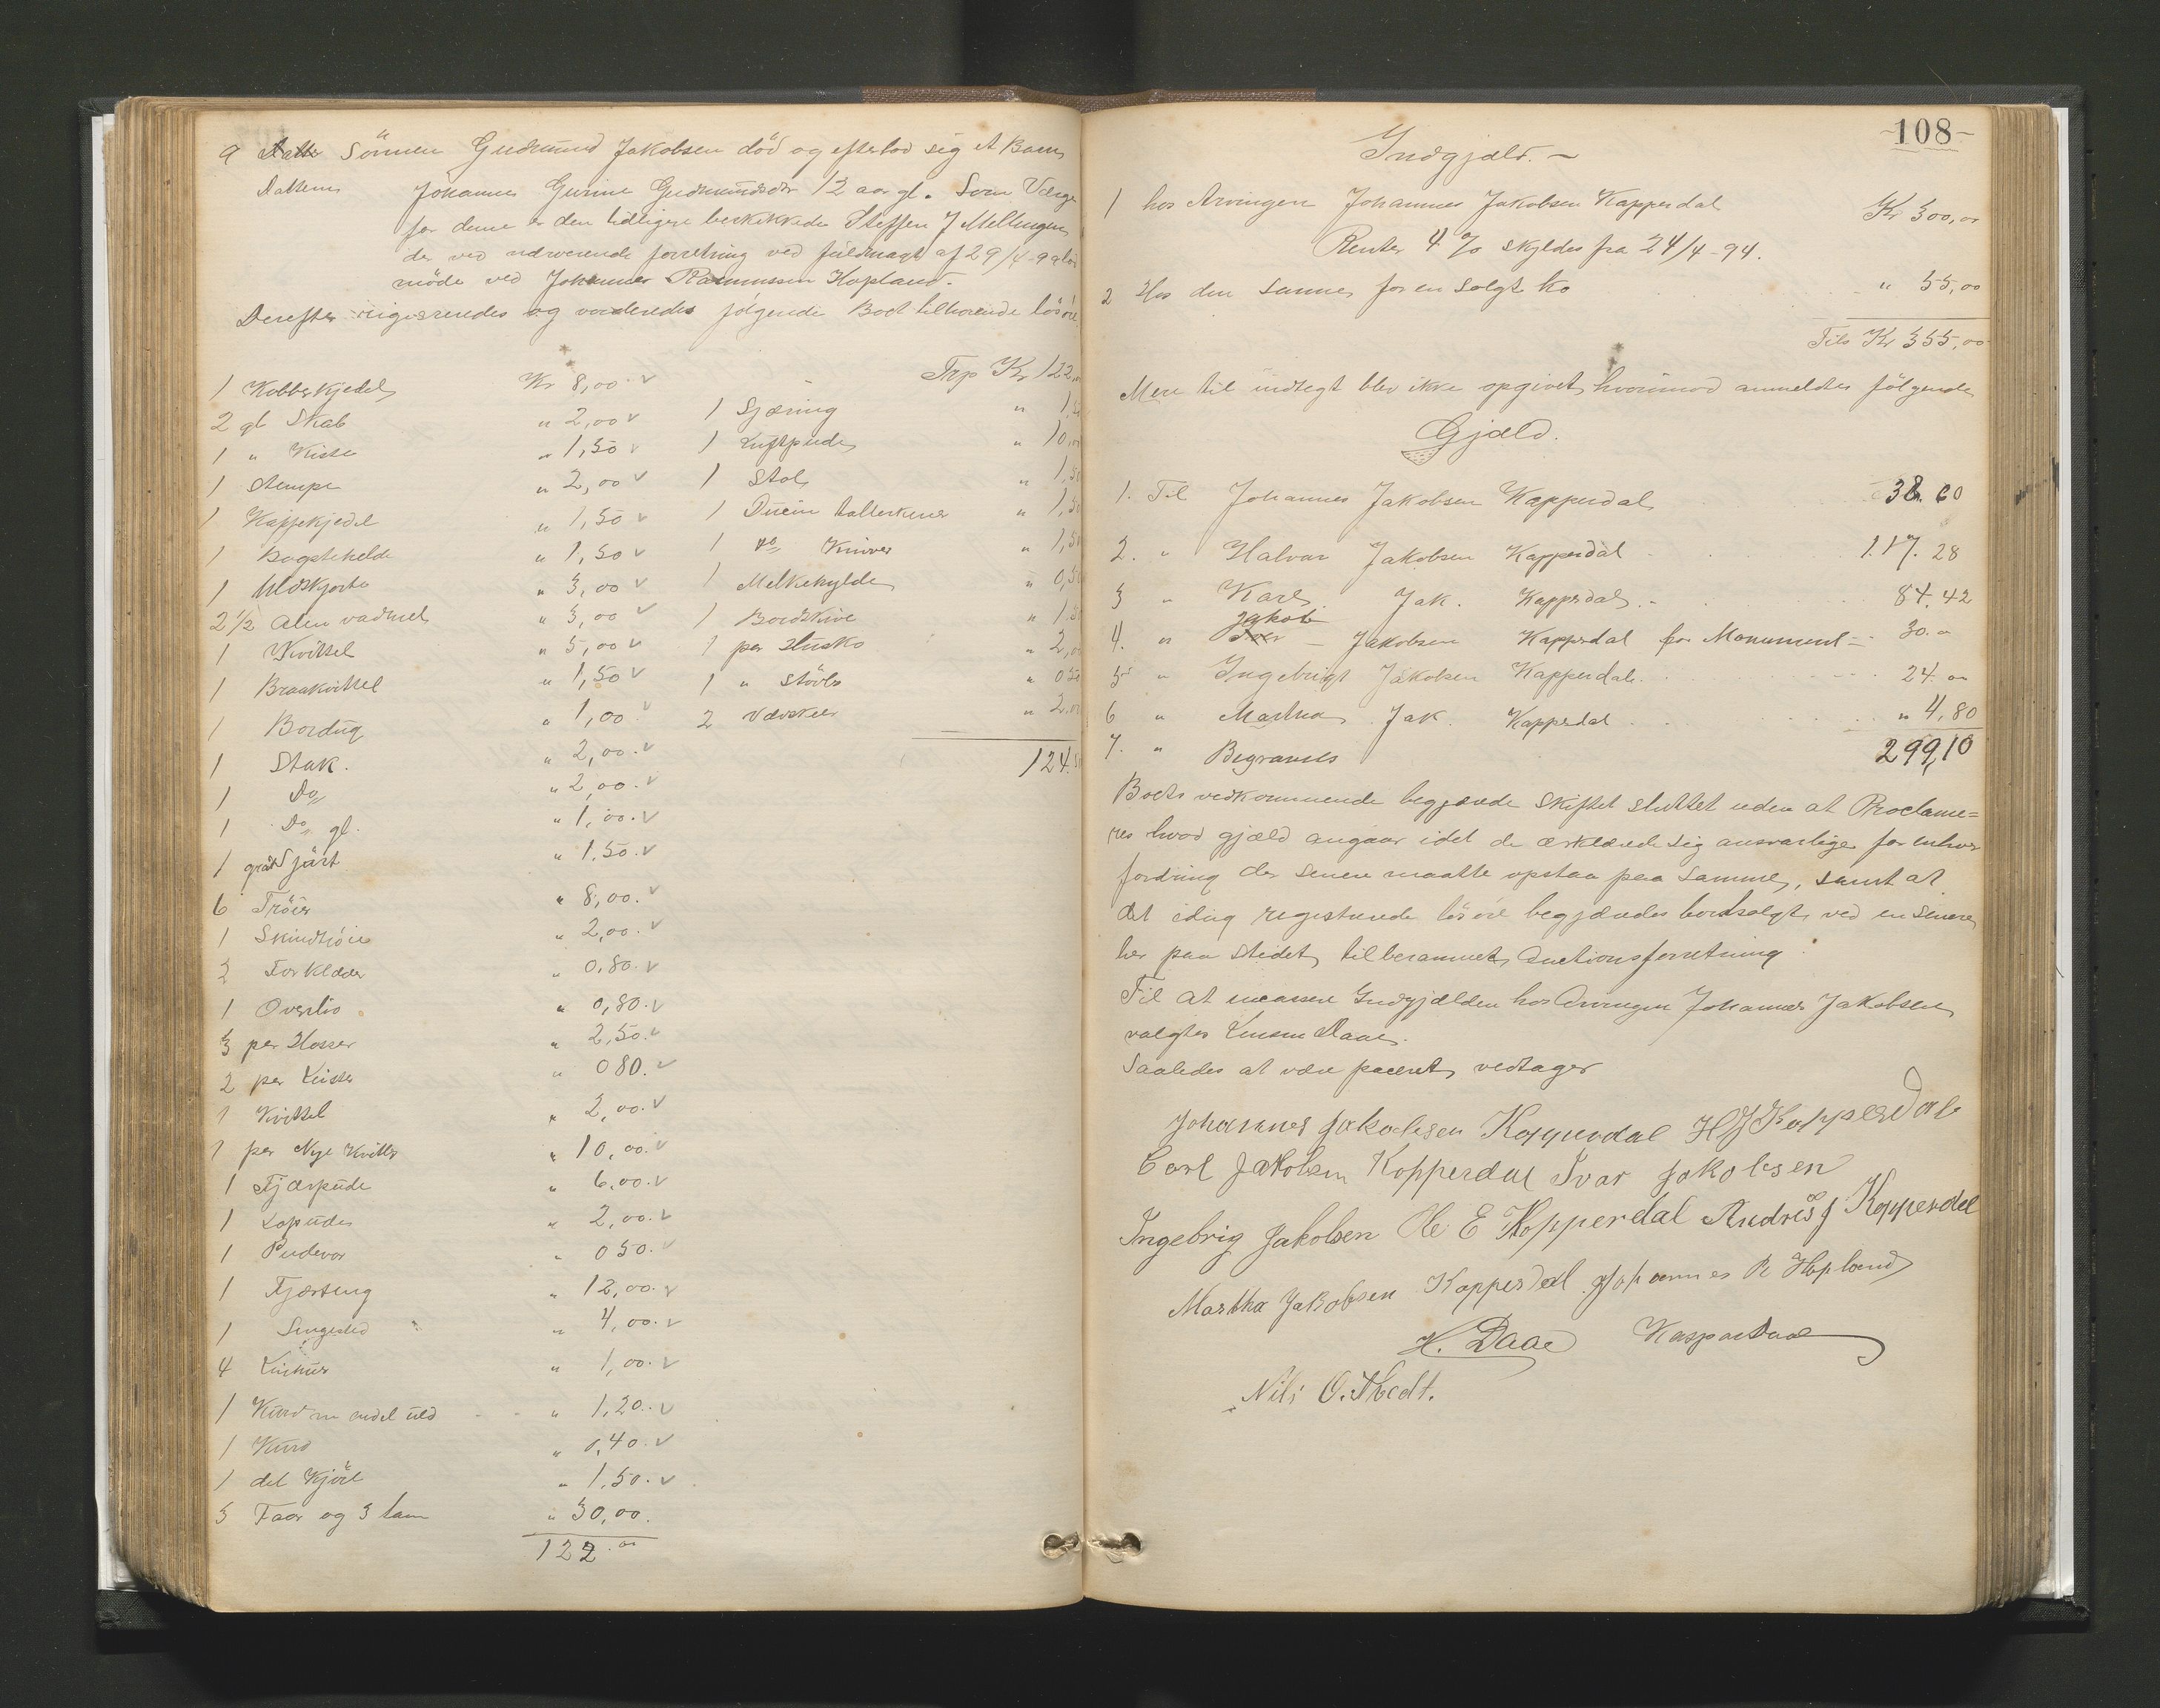 9 Sönnen Gudmund Jakobsen död og efterlod sig et Barn
Datteren Johanne Gurine Gudmundsdr 12 aar gl. Som Værge
for denne er den tidligere beskikkede Steffen J Mellingen
der ved nærværende forretning ved fuldmagt af 29/4
möde ved Johannes Rasmussen Hopland.
Derefter registreredes og vurderedes følgende Boet tilhørende løsöre
1 Kobberkjedel Kr 8,00
2 gl Skab " 2,00
1 " Kiste " 1,50
1 Stampe " 2,00
1 Kaffekjedel " 1,50
1 Bagstehelde " 1,50
1 Uldskjorte " 3,00
2 1/2 Alen vadmel " 3,00
1 Kvittel " 5,00
1 Braakvittel " 1,50
1 Bordug " 1,00
1 Stak. " 2,00
1 Do " 2,00
1 Do gl. " 1,00
1 " 1,50
6 Tröier " 8,00
1 Skindtröie " 2,00
2 Forklæder " 0,80
1 Overliv " 0,80
3 par Hoser " 2,50
2 par Leister " 080
1 Kvittel " 2,00
1 par Nye Kvitler " 10,00
1 Fjærpude " 6,00
1 Lopude " 2,00
1 Pudevar " 050
1 Fjærseng " 12,00
1 Sengested " 4,00
4 " 1,00
1 Kurv m endel uld " 1,20
1 Kurv " 0,40
1 del Kjörl " 1,50
3 Faar og 3 lam " 30,00
122.00
Trp Kr 122,
1 Sjæring "
1 Luftpude " 10,
1 Stol "
1 Dusin tallerkener "
1 do Kniver "
1 Melkehylde "
1 Bordskive "
1 par Husko "
1 " Stövler "
2 Vævskeer "
124.
108
Indgjæld. -
1 hos Arvingen Johannes Jakobsen Kapperdal Kr 300,00
Renter 4 % skyldes fra 24/4-94.
2 Hos den samme for en solgt Ko " 55,00
Tils Kr 355,00
Mere til indtegt blev ikke opgivet, hvorimod anmeldtes fölgende
Gjæld.
1. Til Johannes Jakobsen Kapperdal 38.60
2. " Halvar Jakobsen Kapperdal 117.28
3 " Karl Jak. Kapperdal. 84,42
Jakob
4. " Iver - Jakobsen Kapperdal for Monument 30.00
5 " Ingebrigt Jakobsen Kapperdal. 24.00
6 " Martha Jak. Kapperdal " 4,80
7. " Begravels 299,10
Boets vedkommende begjærede skiftet sluttet uden at Proclame=
res hvad gjæld angaar idet de erklærede sig ansvarlige for enhver
fordring der senere maatte opstaa paa samme, samt at
det idag registrerede lösöre begjæredes bortsolgt, ved en senere
her paa stedet tilberammet Auctionsforretning.
Til at incassere Indgjælden hos Arvingen Johannes Jakobsen
valgtes Lensm Daae.
Saaledes at være passeret, vedtager
Johannes Jakobsen Kopperdal H J Kopperdal
Carl Jakobsen Kopperdal Ivar Jakobsen
Ingebrig Jakobsen Ole E Kopperdal Andreas J Kopperdal
Martha Jakobsen Kopperdal Johannes R Hopland
H. Daae Kaspar Daae
Nils O. Thedt.